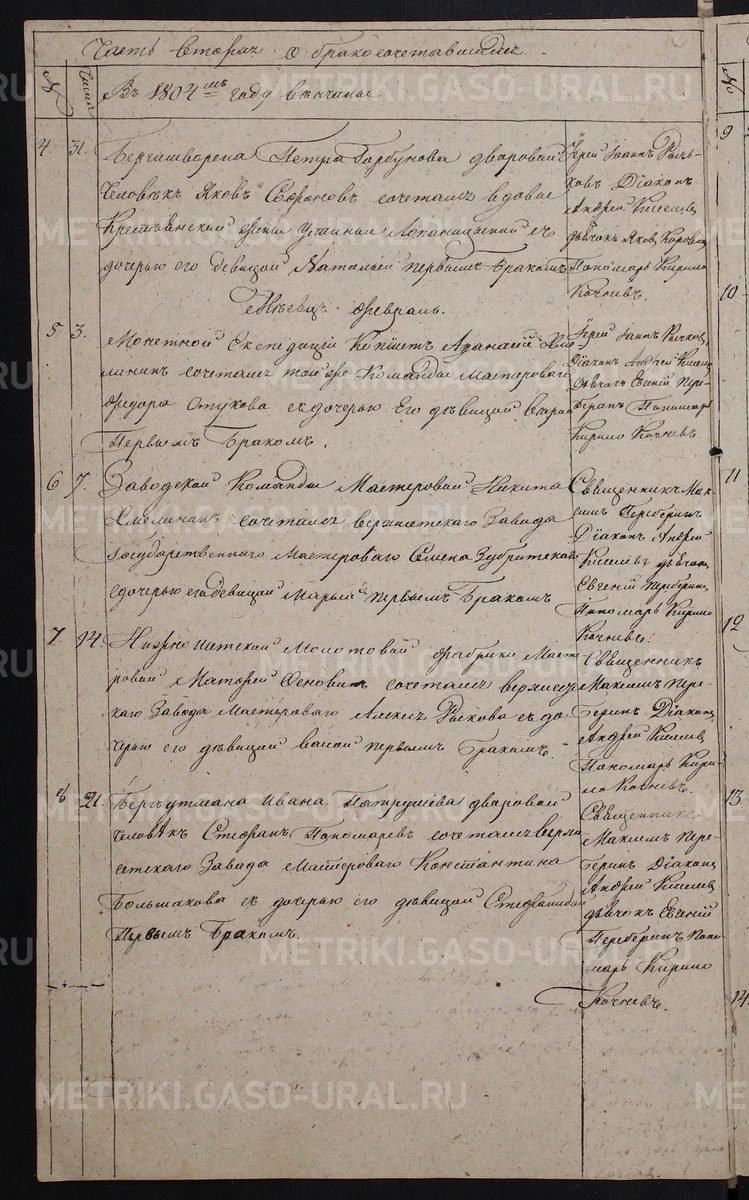 Часть вторая о бракосочетавшихся.
№
Числа
Въ 1804мъ году венчаны
4. 31. Бергшворена Петра Горбунова дворовой
человѣкъ Яковъ Сафроновъ сочетанъ вдовы
Крестьянской жены Устиньи съ
дочерью его девицой Натальей первымъ бракомъ
Іерей Іоаннъ Рыч-
ковъ Діаконъ
Андрей Киселевъ
дьячокъ Яковъ
Пономарь Кирило
Кочневъ.
Мѣсецъ февраль.
5 3. Монетной Експедиціи Копіистъ Афанасій
сочетанъ той же Команды мастероваго
Федора Стукова съ дочерью Его дѣвицой
Первымъ Бракомъ.
Іерей Іоаннъ Рычковъ
Діаконъ Андрей Кисел
Дьячокъ Евгеній Пере-
беринъ Пономарь
Кирило Кочневъ.
6 7. Заводской Команды Мастеровой Никита
Хмелининъ сочетанъ верхисетскаго Завода
Государственнаго Мастероваго Семена
сдочерью его девицой Марьей первымъ Бракомъ
Священникъ Мак-
симъ Переберинъ
Діаконъ Андрей
Киселевъ дьячокъ
Евгеній Переберинъ
Пономарь Кирило
Кочневъ.
7. 14. Нижно Исетской молотовой фабрики Масте-
ровой Матфей сочетанъ верхисет
каго Завода Мастероваго Алексея Рыскова съ до-
черью его дѣвицой первымъ Бракомъ.
Священникъ
Максимъ Пере-
беринъ Діаконъ
Андрей Киселевъ
Пономарь Кири-
ло Кочневъ.
8 21. Бергъгутмана Ивана Патрушева дворовой
человѣкъ Стефанъ Пономаревъ сочетанъ верхи
сетскаго Завода Мастероваго Константина
Большакова съ дочерью его дѣвицой Стефанидой
Первымъ Бракомъ.
Священникъ
Максимъ Пере-
беринъ Діаконъ
Андрей Киселевъ
дьячокъ Евгеній
Переберинъ Поно-
марь Кирило
Кочневъ.
№
9
10
11
12
13
14.
METRIKI.GASO-URAL.RU